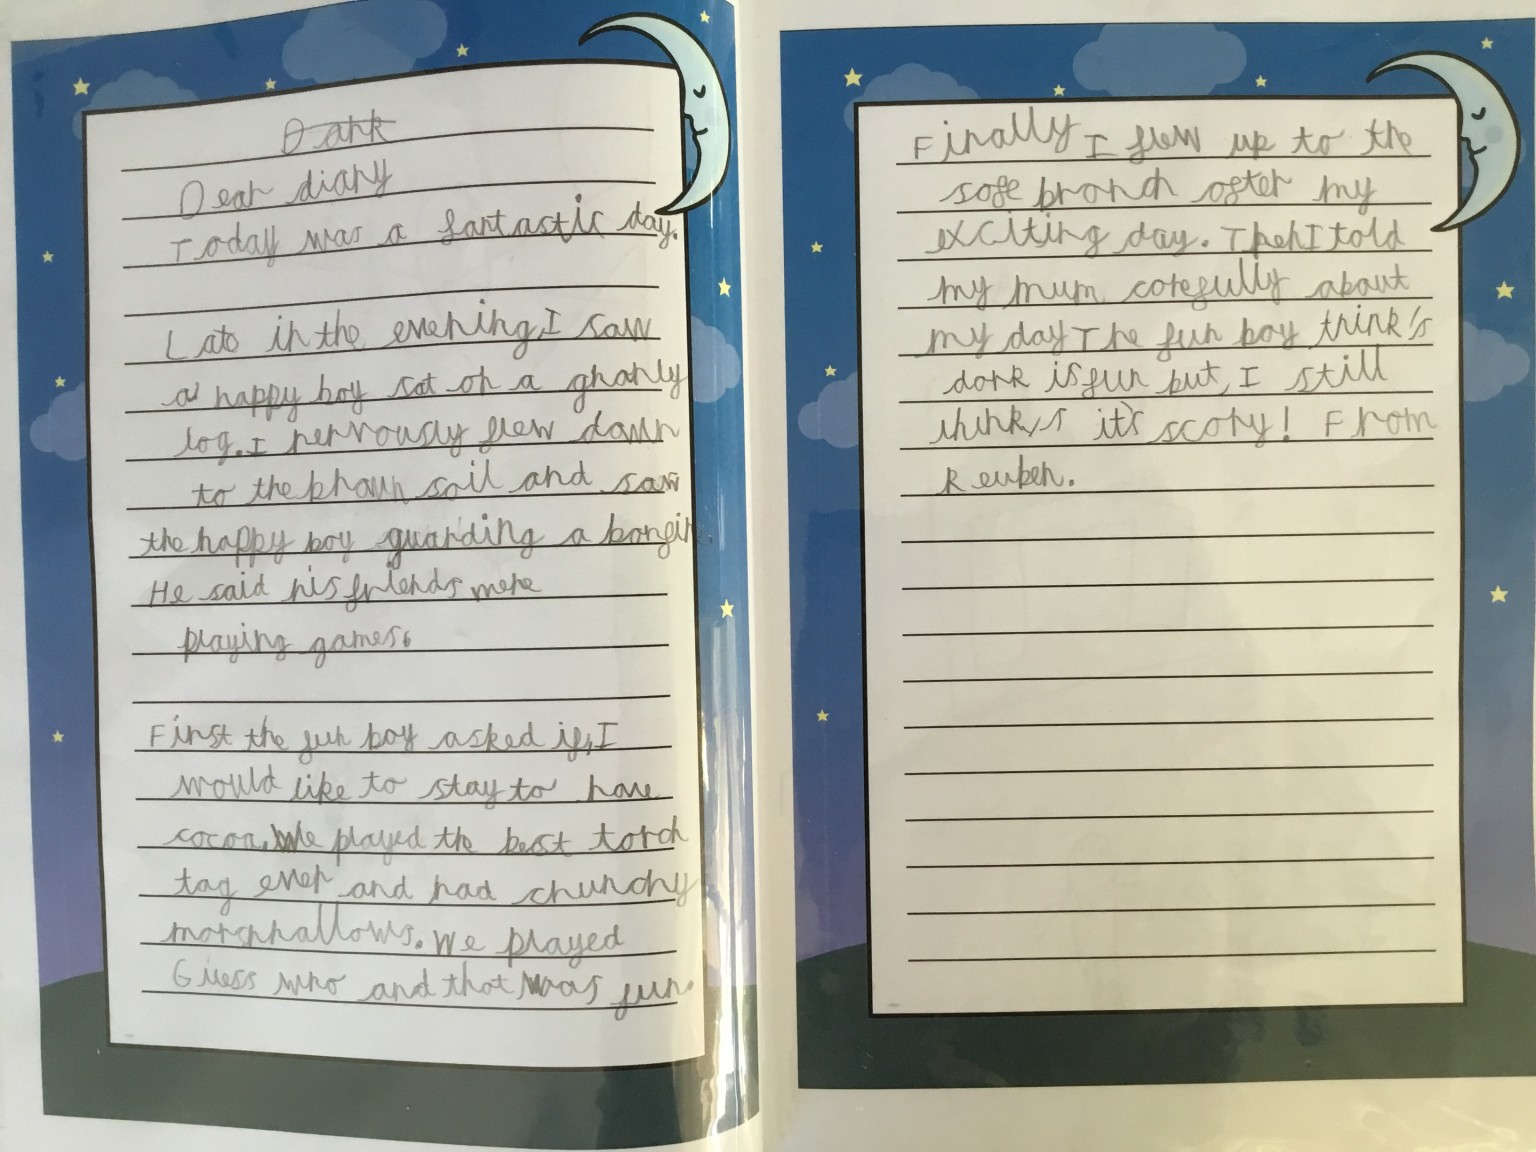 Dark
Dear diary
Today was a fantastic day.
Late in the evening, I saw
a happy boy sat on a gnarly
log. I nervously flew down
to the brown soil and saw
the happy boy guarding a
He said his friends were
playing games.
First the fun boy asked if, I
would like to stay to have
cocoa. We played the best torch
tag ever and had chunchy
morshhallows. We played
Guess who and that was fun.
Finally I flew up to the
safe branch after my
exciting day. Then I told
my mum carefully about
my day The fun boy think's
dark is fun but, I still
think's it's scary! From
Reuben.